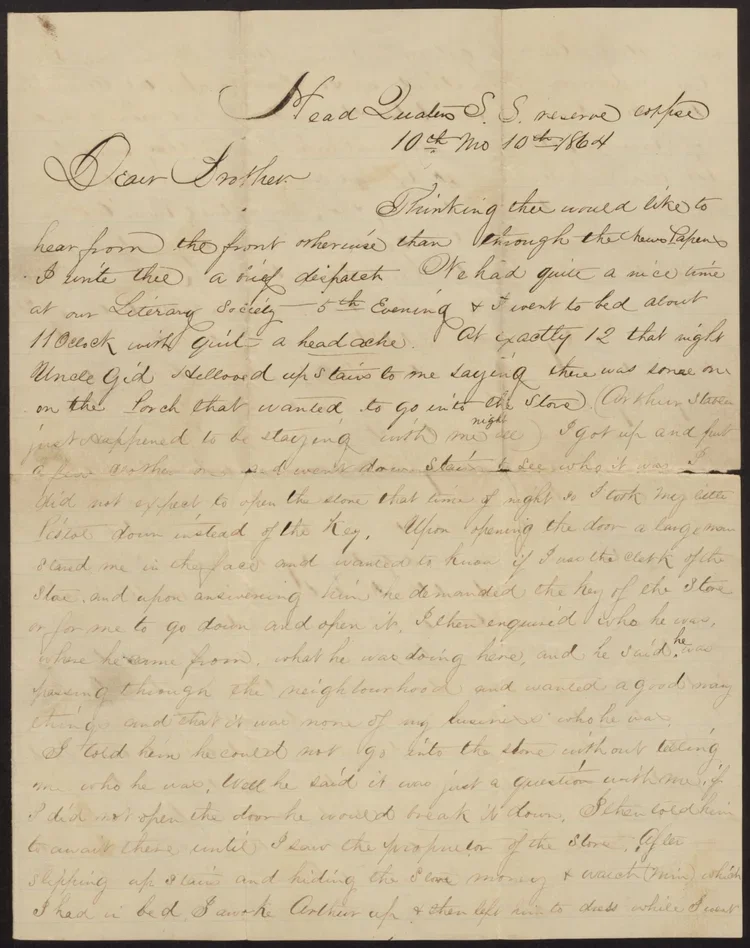 Head Quaters S. S. reserve corpse
10th Mo 10th 1864
Dear Brother
Thinking thee would like to
hear from the front otherwise than through the News Papers
I write thee a brief dispatch We had quite a nice time
at our Literary Society 5th Evening & I went to bed about
11 Oclock with quit a headache. At exactly 12 that night
Uncle Gid Hellooed up Stairs to me saying there was some one
on the Porch that wanted to go into the Store (Arthur Stabler
just happened to be staying with me all night) I got up and put
a few clothes on and went down Stairs to see who it was I
did not expect to open the store that time of night so I took my little
Pistol down instead of the Key. Upon opening the door a large man
stared me in the face and wanted to know if I was the clerk of the
Stoe. and upon answering him he demanded the key of the Store
or for me to go down and open it. I then enquired who he was,
where he came from, what he was doing here, and he said he was
passing through the neighbourhood and wanted a good many
things and that it was none of my business who he was.
I told him he could not go into the store without telling
me who he was. Well he said it was just a question with me, if
I did not open the door he would break it down. I then told him
to await there until I saw the proprietor of the Store. After
slipping up stairs and hiding the Store money & watch (mine) which
I had in bed, I awoke Arthur up & then left him to dress while I went